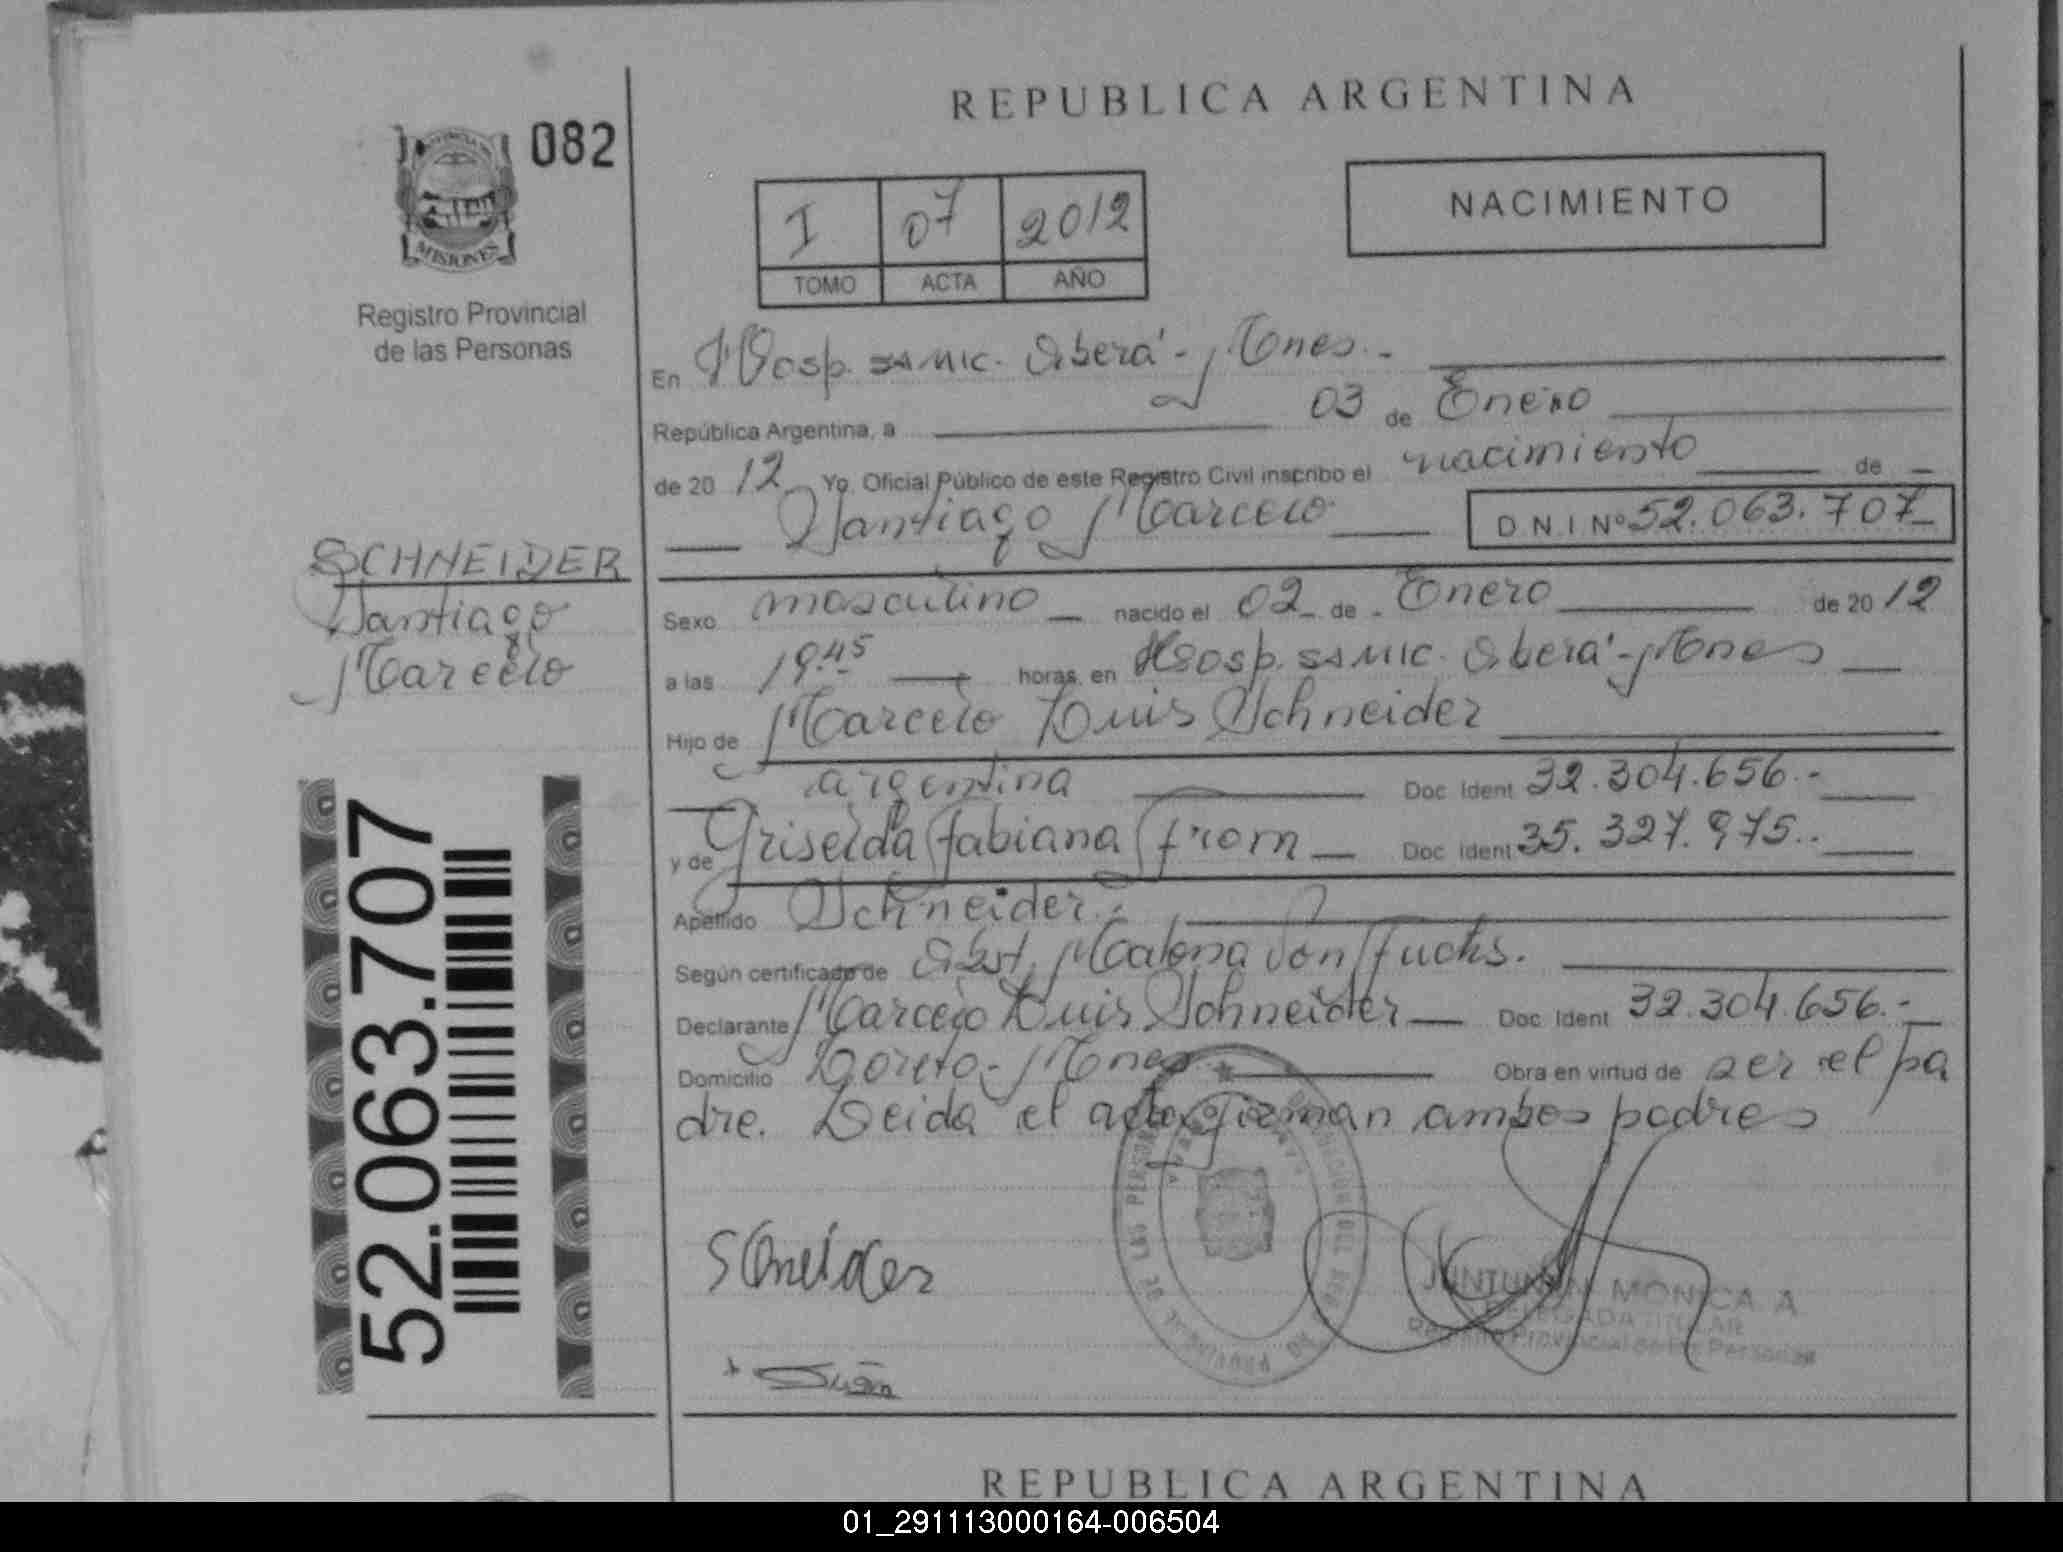 REPUBLICA ARGENTINA
082
NACIMIENTO
I 07 2012
TOMO ACTA AÑO
MISIONES
Registro Provincial
de las Personas
En Hosp. SAMIC. Oberá - Mnes.-
República Argentina, a 03 de Enero
de 20 12 Yo, Oficial Público de este Registro Civil inscribo el nacimiento de
Santiago Marcelo D.N.I Nº 52.063.707
SCHNEIDER
Santiago
Marcelo
Sexo masculino nacido el 02 de Enero de 20 12
a las 19.45 horas, en Hosp. SAMIC. Oberá - Mnes
Hijo de Marcelo Luis Schneider
argentina Doc Ident 32.304.656.-
y de Griselda Fabiana From Doc Ident 35.327.975..
Apellido Schneider.
Según certificado de Obst. Malena Von Fuchs.
Declarante Marcelo Luis Schneider Doc. Ident 32.304.656.-
Domicilio Loreto - Mnes Obra en virtud de ser el pa
dre. Leida el acta firman ambos padres
52.063.707
Schneider
MONICA A
DELEGADA TITULAR
Registro Provincial de las Personas
REPUBLICA ARGENTINA
01_291113000164-006504